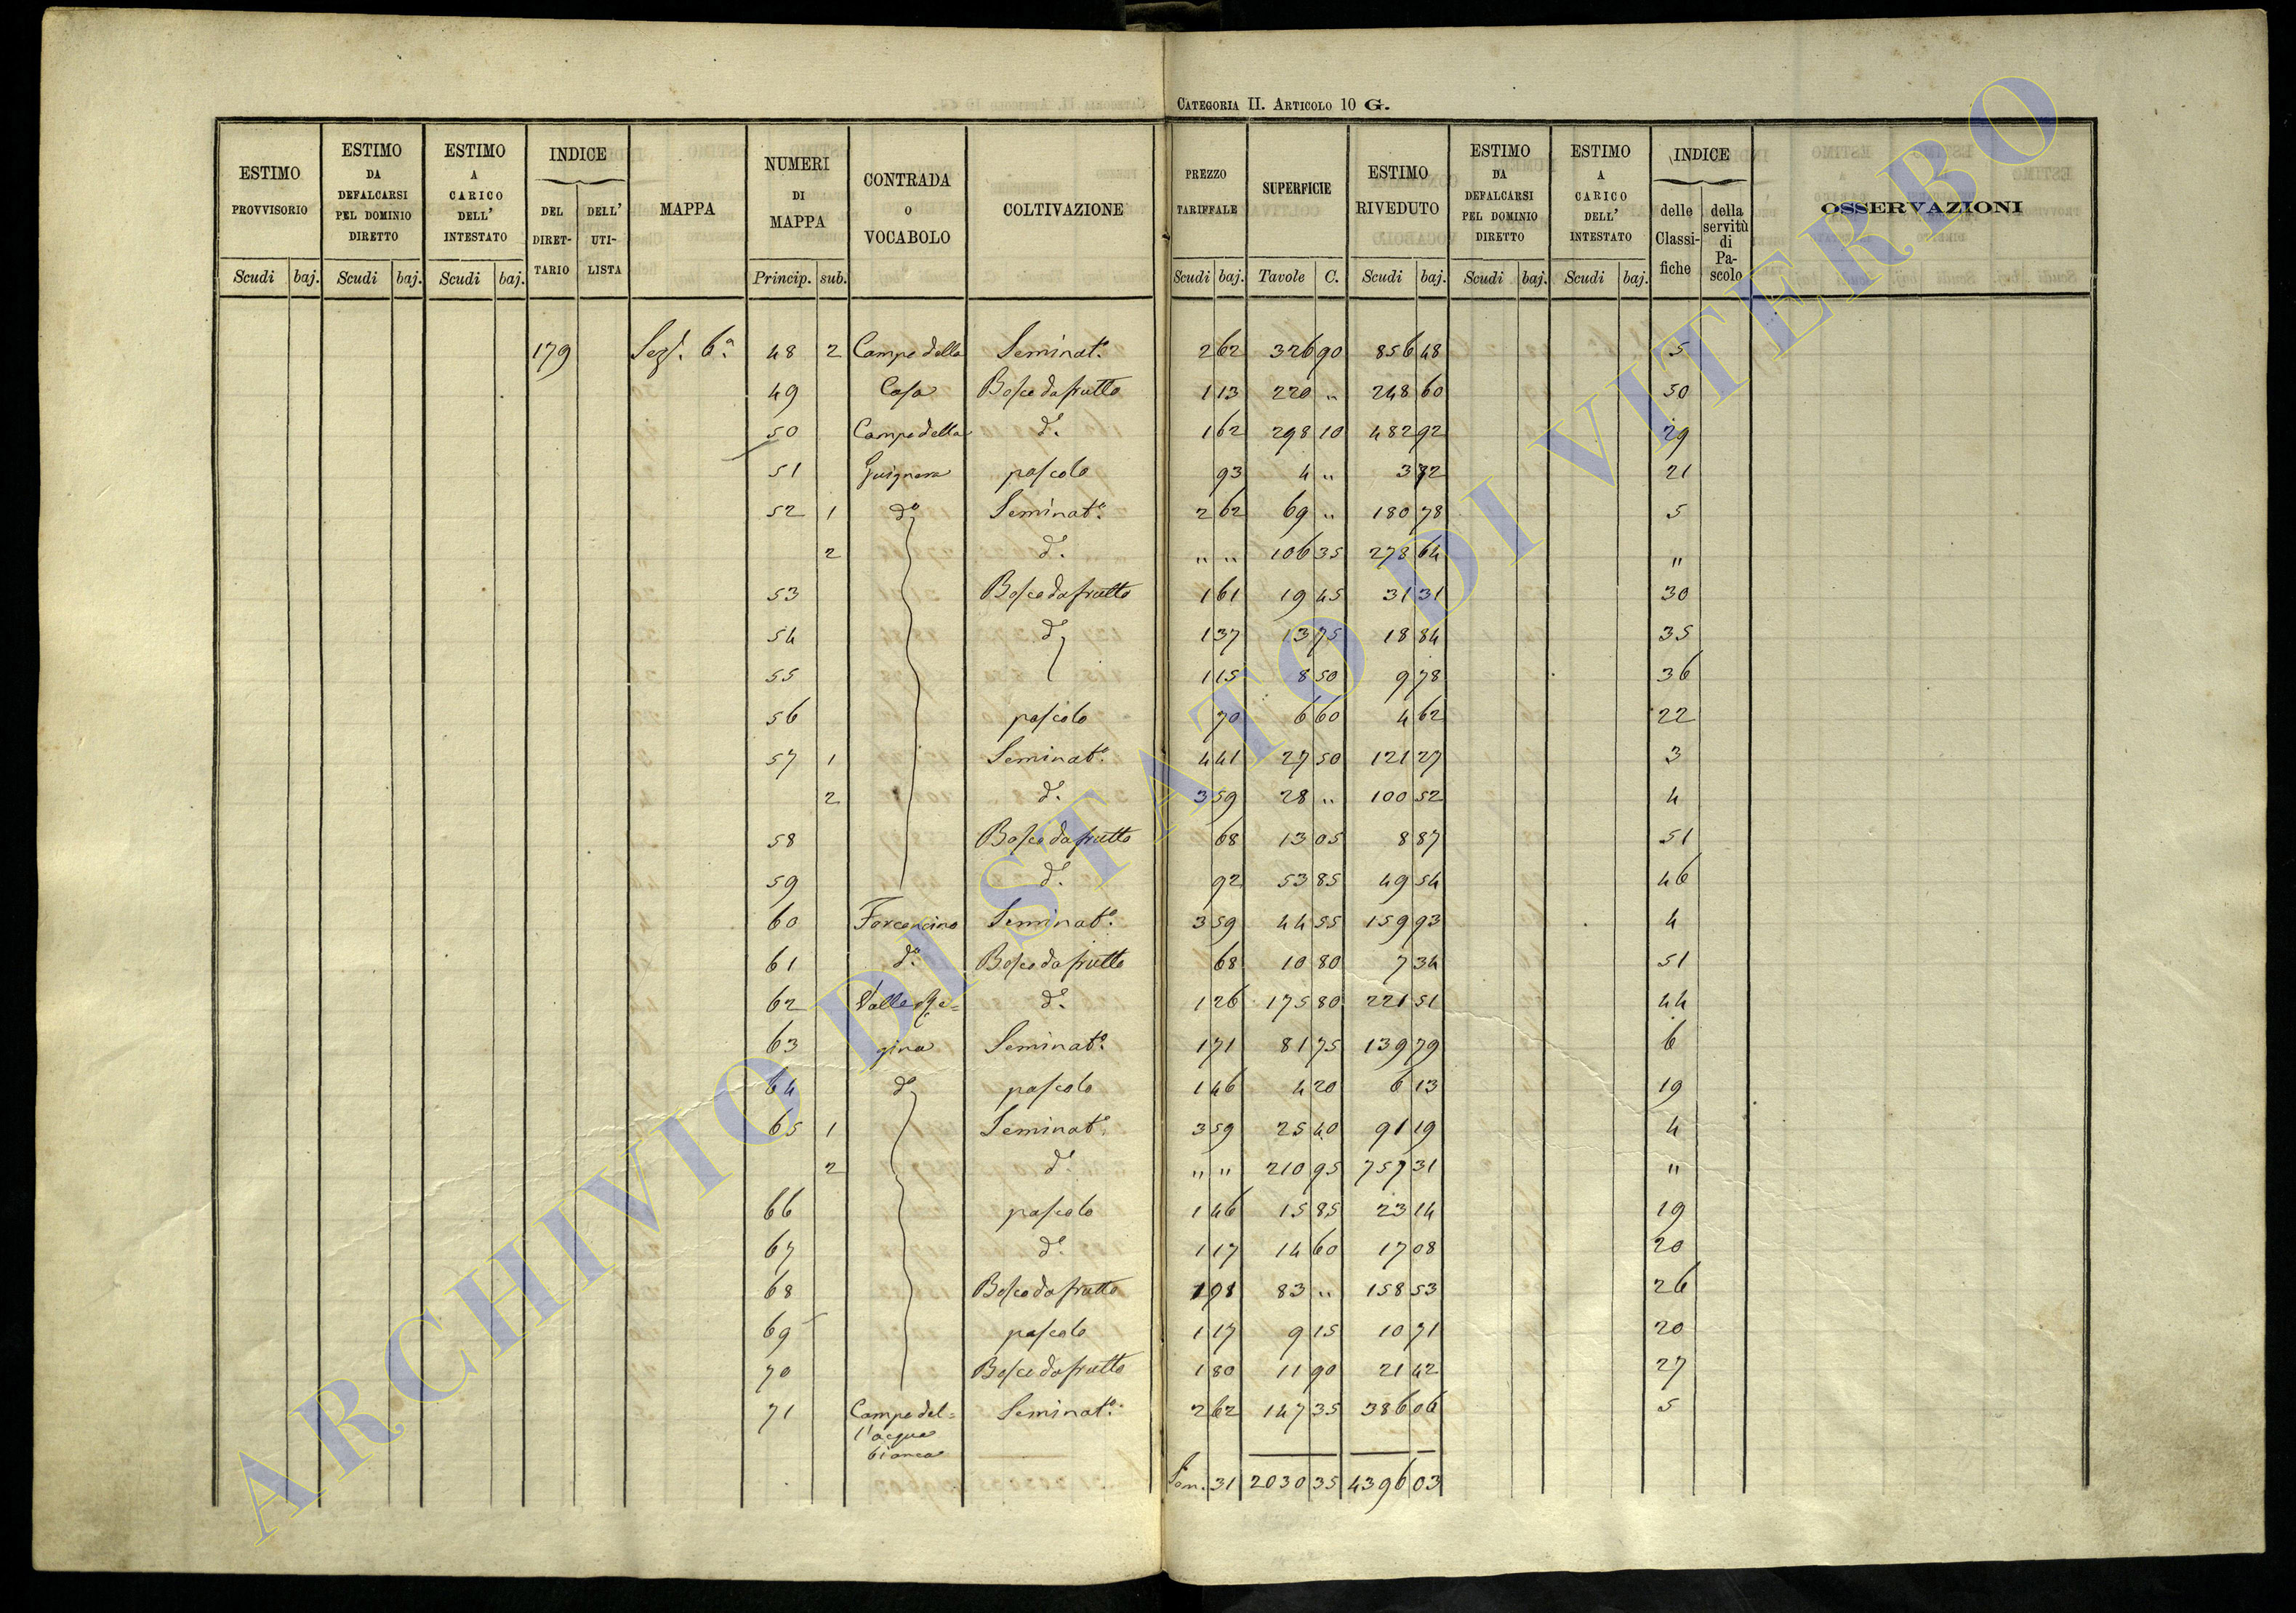 CATEGORIA II. ARTICOLO 10 G.
ESTIMO PROVVISORIO | ESTIMO DA DEFALCARSI PEL DOMINIO DIRETTO | ESTIMO A CARICO DELL' INTESTATO | INDICE DEL DIRET-TARIO | DELL' UTI-LISTA | MAPPA | NUMERI DI MAPPA | CONTRADA O VOCABOLO | COLTIVAZIONE | PREZZO TARIFFALE | SUPERFICIE | ESTIMO RIVEDUTO | ESTIMO DA DEFALCARSI PEL DOMINIO DIRETTO | ESTIMO A CARICO DELL' INTESTATO | INDICE delle Classi-fiche | della servitù di Pa-scolo | OSSERVAZIONI
Scudi baj. | Scudi baj. | Scudi baj. | Princip. sub. | Scudi baj. | Tavole C. | Scudi baj. | Scudi baj. | Scudi baj.
179 Sez. 6a 48 2 Campo della Seminato. 2 62 326 90 856 48 5
49 Casa Bosco da frutto 1 13 220 " 248 60 50
50 Campo della do. 1 62 298 10 482 92 29
51 pascolo 93 4 " 3 72 21
52 1 do Seminato. 2 62 69 " 180 78 5
2 do. " " 106 35 278 64 "
53 Bosco da frutto 1 61 19 45 31 31 30
54 do 1 37 13 75 18 84 35
55 1 15 8 50 9 78 36
56 pascolo 70 6 60 4 62 22
57 1 Seminato. 4 41 27 50 121 27 3
2 do. 3 59 28 " 100 52 4
58 Bosco da frutto 68 13 05 8 87 51
59 do. 92 53 85 49 54 46
60 Forconcino Seminato. 3 59 44 55 159 93 4
61 do. Bosco da frutto 68 10 80 7 34 51
62 Valle Re= do. 1 26 175 80 221 51 44
63 gina Seminato. 1 71 81 75 139 79 6
64 do pascolo 1 46 4 20 6 13 19
65 1 Seminato. 3 59 25 40 91 19 4
2 do. " " 210 95 757 31 "
66 pascolo 1 46 15 85 23 14 19
67 do. 1 17 14 60 17 08 20
68 Bosco da frutto 1 91 83 " 158 53 26
69 pascolo 1 17 9 15 10 71 20
70 Bosco da frutto 1 80 11 90 21 42 27
71 Campo del= Seminato. 2 62 147 35 386 06 5
l'acqua
bianca
Som. 31 2030 35 4396 03
ARCHIVIO DI STATO DI VITERBO